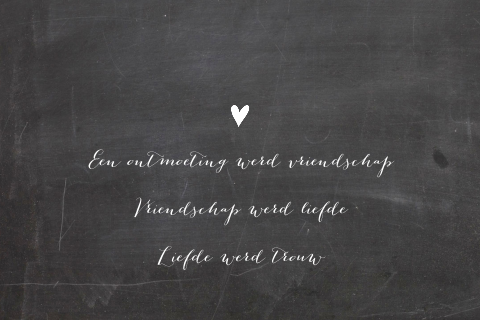 Een ontmoeting werd vriendschap
Vriendschap werd liefde
Liefde werd trouw